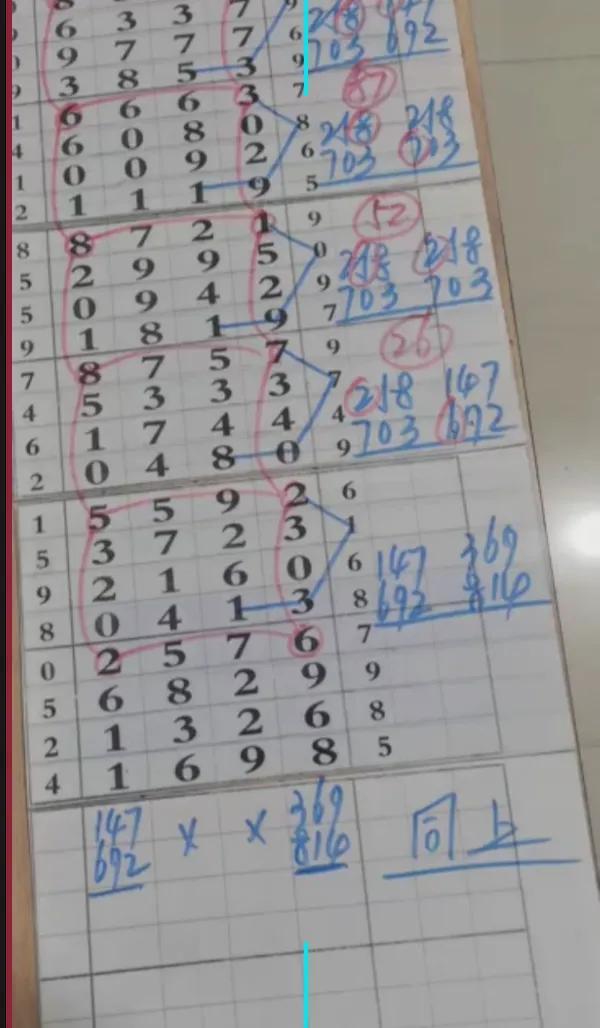 6 3 3 7 6
9 7 7 7 9 703 692
9 3 8 5 3 7 87
1 6 6 6 3 8 218 218
4 6 0 8 0 6 703 703
1 0 0 9 2 5
2 1 1 1 9
8 8 7 2 1 9 52
5 2 9 9 5 0 218 218
5 0 9 4 2 9 703 703
9 1 8 1 9 7
7 8 7 5 7 9 26
4 5 3 3 3 7 218 147
6 1 7 4 4 4 703 692
2 0 4 8 0 9
1 5 5 9 2 6
5 3 7 2 3 1
9 2 1 6 0 6 147 369
8 0 4 1 3 8 692 814
0 2 5 7 6 7
5 6 8 2 9 9
2 1 3 2 6 8
4 1 6 9 8 5
147 x x 369 同上
692 814